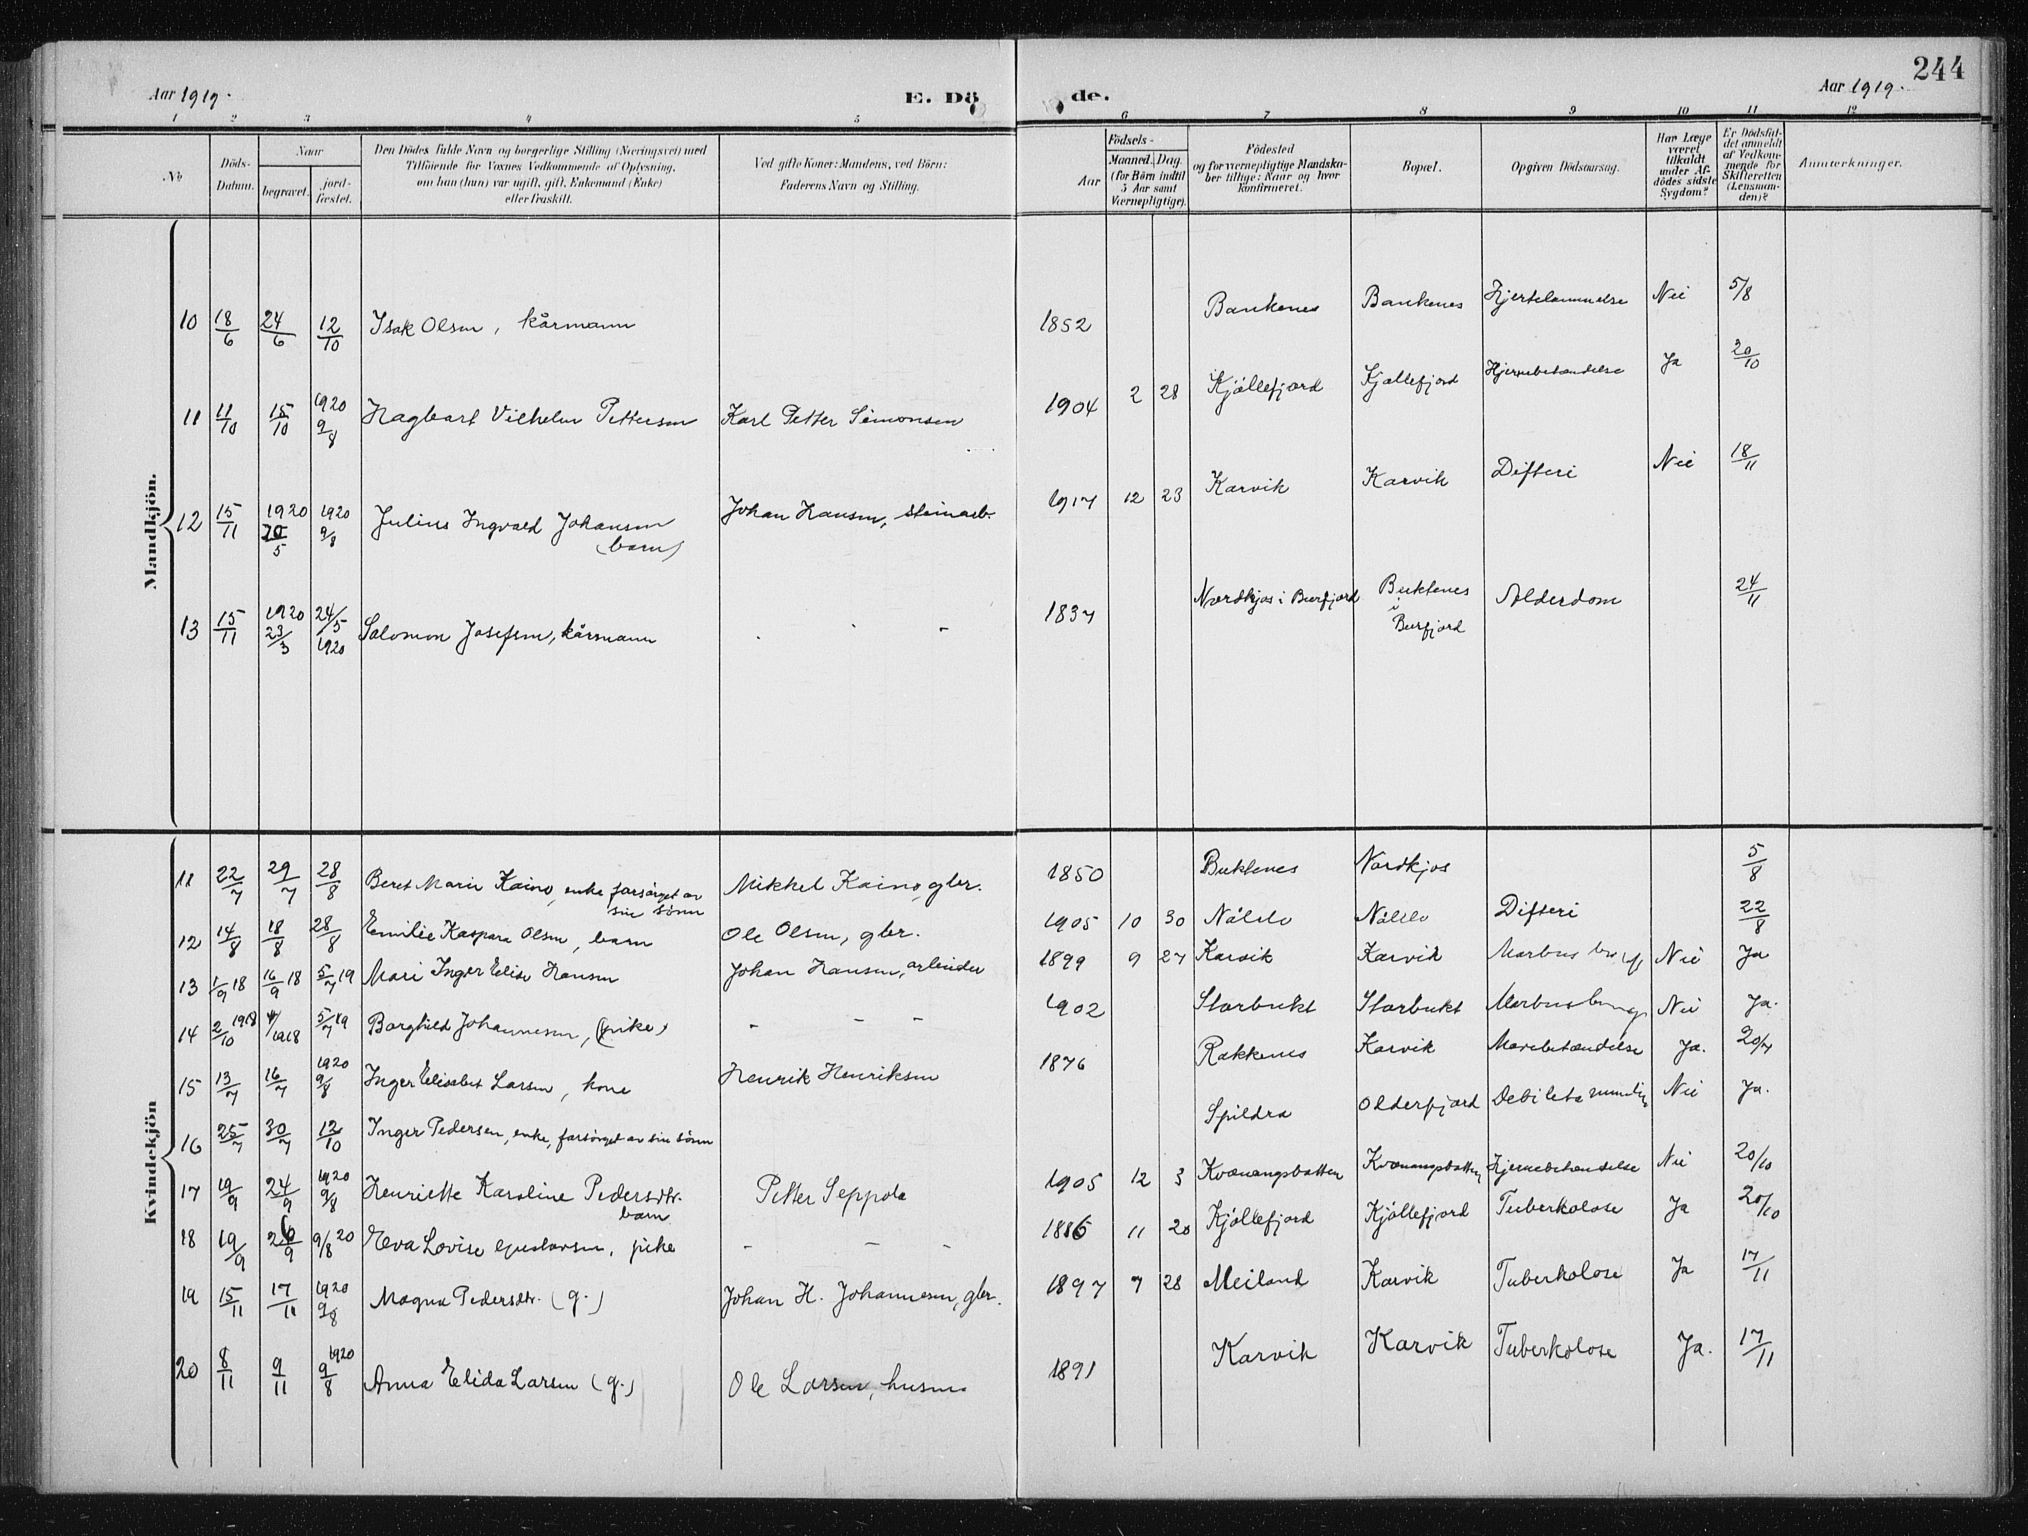 Aar 1919.
E. Döde.
Aar 1919.
244
1 2 3 4 5 6 7 8 9 10 11 12
No
Döds-Datum.
Naar
begravet.
jord-fæstet.
Den Dödes fulde Navn og borgerlige Stilling (Næringsvei) med
Tilföiende for Voxnes Vedkommende af Oplysning,
om han (hun) var ugift, gift, Enkemand (Enke)
eller fraskilt.
Ved gifte Koner: Mandens, ved Börn:
Faderens Navn og Stilling.
Födsels-
Aar
Maaned. Dag.
(for Börn indtil
5 Aar samt
Værnepligtige).
Födested
og for værnepligtige Mandska-
ber tillige: Naar og hvor
konfirmeret.
Bopæl.
Opgiven Dödsaarsag.
Har Læge
været
tilkaldt
under Af-
dödes sidste
Sygdom?
Er Dödsfal-
det anmeldt
af Vedkom-
mende for
Skifteretten
(Lensman-
den)?
Anmærkninger.
Mandkjön.
10 18/6 24/6 12/10 Isak Olsen, kårmann 1852 Bankenes Bankenes Hjertelammelse Nei 5/8
11 11/10 15/10 1920 9/8 Hagbart Vilhelm Pettersen Karl Petter Simonsen 1904 2 28 Kjöllefjord Kjöllefjord Hjernebetændelse Ja 20/10
12 15/11 1920 20/5 1920 9/8 Julius Ingvald Johansen (barn) Johan Hansen, steinarb. 1917 12 23 Karvik Karvik Difteri Nei 18/11
13 15/11 1920 23/3 24/5 1920 Salomon Josefsen, kårmann - - - 1837 Nordkjos i Burfjord Buktenes i Burfjord Alderdom 24/11
Kvindekjön
11 22/7 29/7 28/8 Beret Marie Kaino, enke forsörget av sin sönn Mikkel Kaino, gbr. 1850 Buktenes Nordkjos 5/8
12 14/8 18/8 28/8 Emilie Kaspara Olsen, barn Ole Olsen, gbr. 1905 10 30 Difteri 22/8
13 1/9 18 16/9 18 5/7 19 Mari Inger Elise Hansen Johan Hansen, arbeider 1899 9 27 Karvik Karvik Morbus Nei Ja
14 2/10 1918 1918 5/7 19 Borghild Johannesen, (pike) - - - 1902 Storbukt Storbukt Morbus Nei Ja.
15 13/7 16/7 1920 9/8 Inger Elisabet Larsen, kone Henrik Henriksen 1876 Rakkenes Karvik Mavebetændelse Ja. 20/7
16 25/7 30/7 12/10 Inger Pedersen, enke, forsörget av sin sönn Spildra Olderfjord Debilitas Nei Ja.
17 19/9 24/9 1920 9/8 Henriette Karoline Pedersdtr. barn Petter Seppola 1905 12 3 Kvænangsbotten Kvænangsbotten Hjernebetændelse Nei 20/10
18 19/9 26/9 9/8 20 Eva Lovise Gustavsen, pike - - - 1886 11 20 Kjöllefjord Kjöllefjord Tuberkolose Ja 20/10
19 15/11 17/11 1920 9/8 Magna Pedersdtr. (g.) Johan H. Johannesen, gbr. 1897 7 28 Meiland Karvik Tuberkolose Ja 17/11
20 8/11 9/11 1920 9/8 Anna Elida Larsen (g.) Ole Larsen, husm. 1891 Karvik Karvik Tuberkolose Ja. 17/11